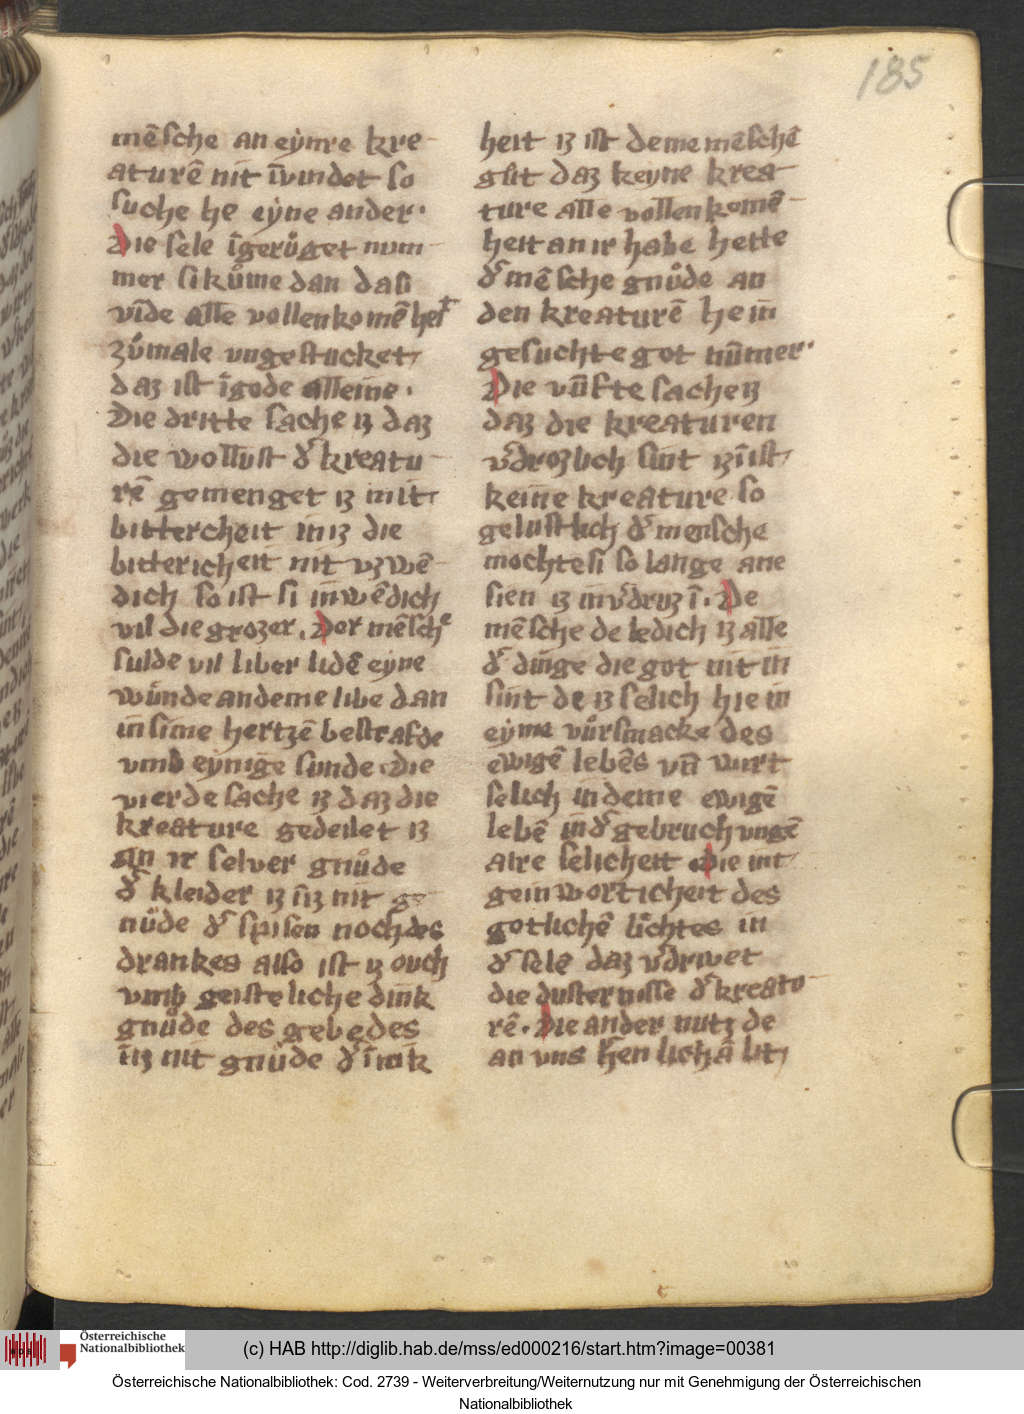 185
mēsche an eynre kre-
aturē nit īvindet so
suche he eyne ander.
Die sele īgerůget num-
mer si kůme dan da si
vīde alle vollenkomēheit
zůmale vngestucket
daz ist īgode alleine.
Die dritte sache iz daz
die wollust d' kreatu-
rē gemenget iz mit
bittercheit īn iz die
bittericheit nit vzwē-
dich so ist si inwēdich
vil die grozer. Der mēsche
sulde vil liber lidē eyne
wunde an deme libe dan
in sime hertzē bestrafde
vmb eynige sunde. Die
vierde sache iz daz die
kreature gedeilet iz
an ir selver gnůde
d' kleider iz īn iz nit ge-
nůde d' spisen noch des
drankes also ist iz ouch
vmb geisteliche dink
gnůde des gebedes
īn iz nit gnůde d' inik
heit iz ist deme mēschē
gůt daz keyne krea-
ture alle vollenkomē-
heit an ir habe hette
d' mēsche gnůde an
den kreaturē he in
gesuchte got nūmer.
Die vūfte sache iz
daz die kreaturen
v'drozlich sint iz ī ist
keine kreature so
gelustlich d' mensche
mochte si so lange ane
sien iz in v'druz ī. De
mēsche de ledich iz alle
d' dinge die got nit in
sint de iz selich hie in
eyme vůrsmacke des
ewigē lebēs vn̄ wirt
selich in deme ewigē
lebē in d' gebruchungē
alre selicheit Die int
geinworticheit des
gotlichē lichtes in
d' sele daz v'driuet
die dusternisse d' kreatu-
rē. Die ander nutz de
an vns hēn lichā lit
(c) HAB http://diglib.hab.de/mss/ed000216/start.htm?image=00381
Österreichische Nationalbibliothek
Österreichische Nationalbibliothek: Cod. 2739 - Weiterverbreitung/Weiternutzung nur mit Genehmigung der Österreichischen
Nationalbibliothek